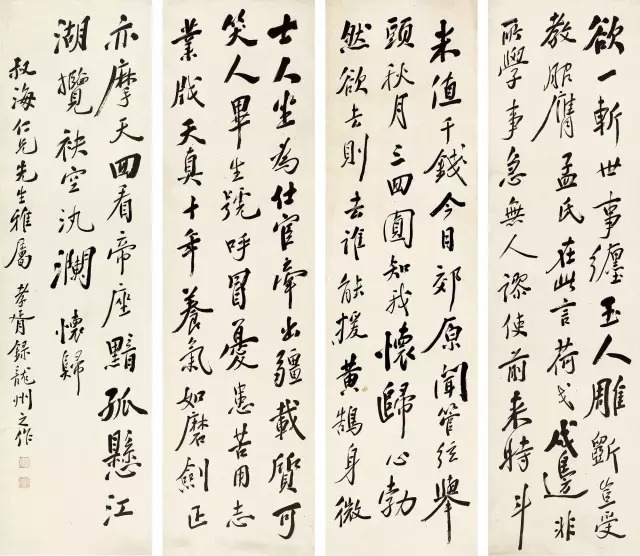 欲一斬世事纏玉人雕斲豈受
教服膺孟氏在此言荷戈戍邊非
所學事急無人謬使前来時斗
米值千錢今日郊原聞管弦舉
頭秋月三四圓知我懷歸心勃
然欲去則去誰能援黃鵠身微
士人坐為仕宦牽出疆載質可
笑人畢生號呼冒憂患苦用志
業戕天真十年養氣如磨劍正
亦摩天回看帝座黯孤懸江
湖攬袂空汍瀾 懷歸
叔海仁兄先生雅屬 孝胥錄龍州之作